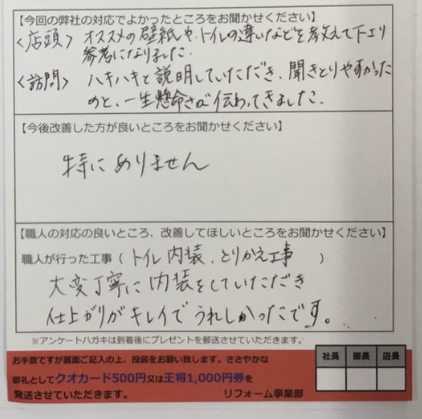 【今回の弊社の対応でよかったところをお聞かせください】
〈店頭〉 オススメの壁紙や、トイレの違いなどを教えて下さり
参考になりました。
〈訪問〉 ハキハキと説明していただき、聞きとりやすかった
のと、一生懸命さが伝わってきました。
【今後改善した方が良いところをお聞かせください】
特にありません
【職人の対応の良いところ、改善してほしいところをお聞かせください】
職人が行った工事（ トイレ内装、とりかえ工事 ）
大変丁寧に内装をしていただき
仕上がりがキレイでうれしかったです。
※アンケートハガキは到着後にプレゼントを郵送させていただきます。
お手数ですが裏面ご記入の上、投函をお願い致します。ささやかな
御礼としてクオカード500円又は王将1,000円券を
発送させていただきます。 リフォーム事業部
社長 部長 店長